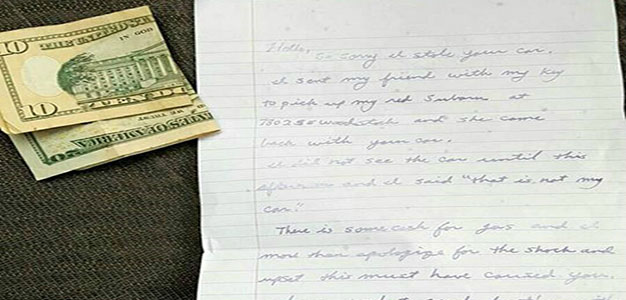 10
THE UNITED STATES
IN GOD
10
Hello,
So sorry I stole your car.
I sent my friend with my key
to pick up my red Subaru at
7802 SE Woodstock and she came
back with your car.
I did not see the car until this
and I said "that is not my
car."
There is some cash for gas and I
more than apologize for the shock and
upset this must have caused you.